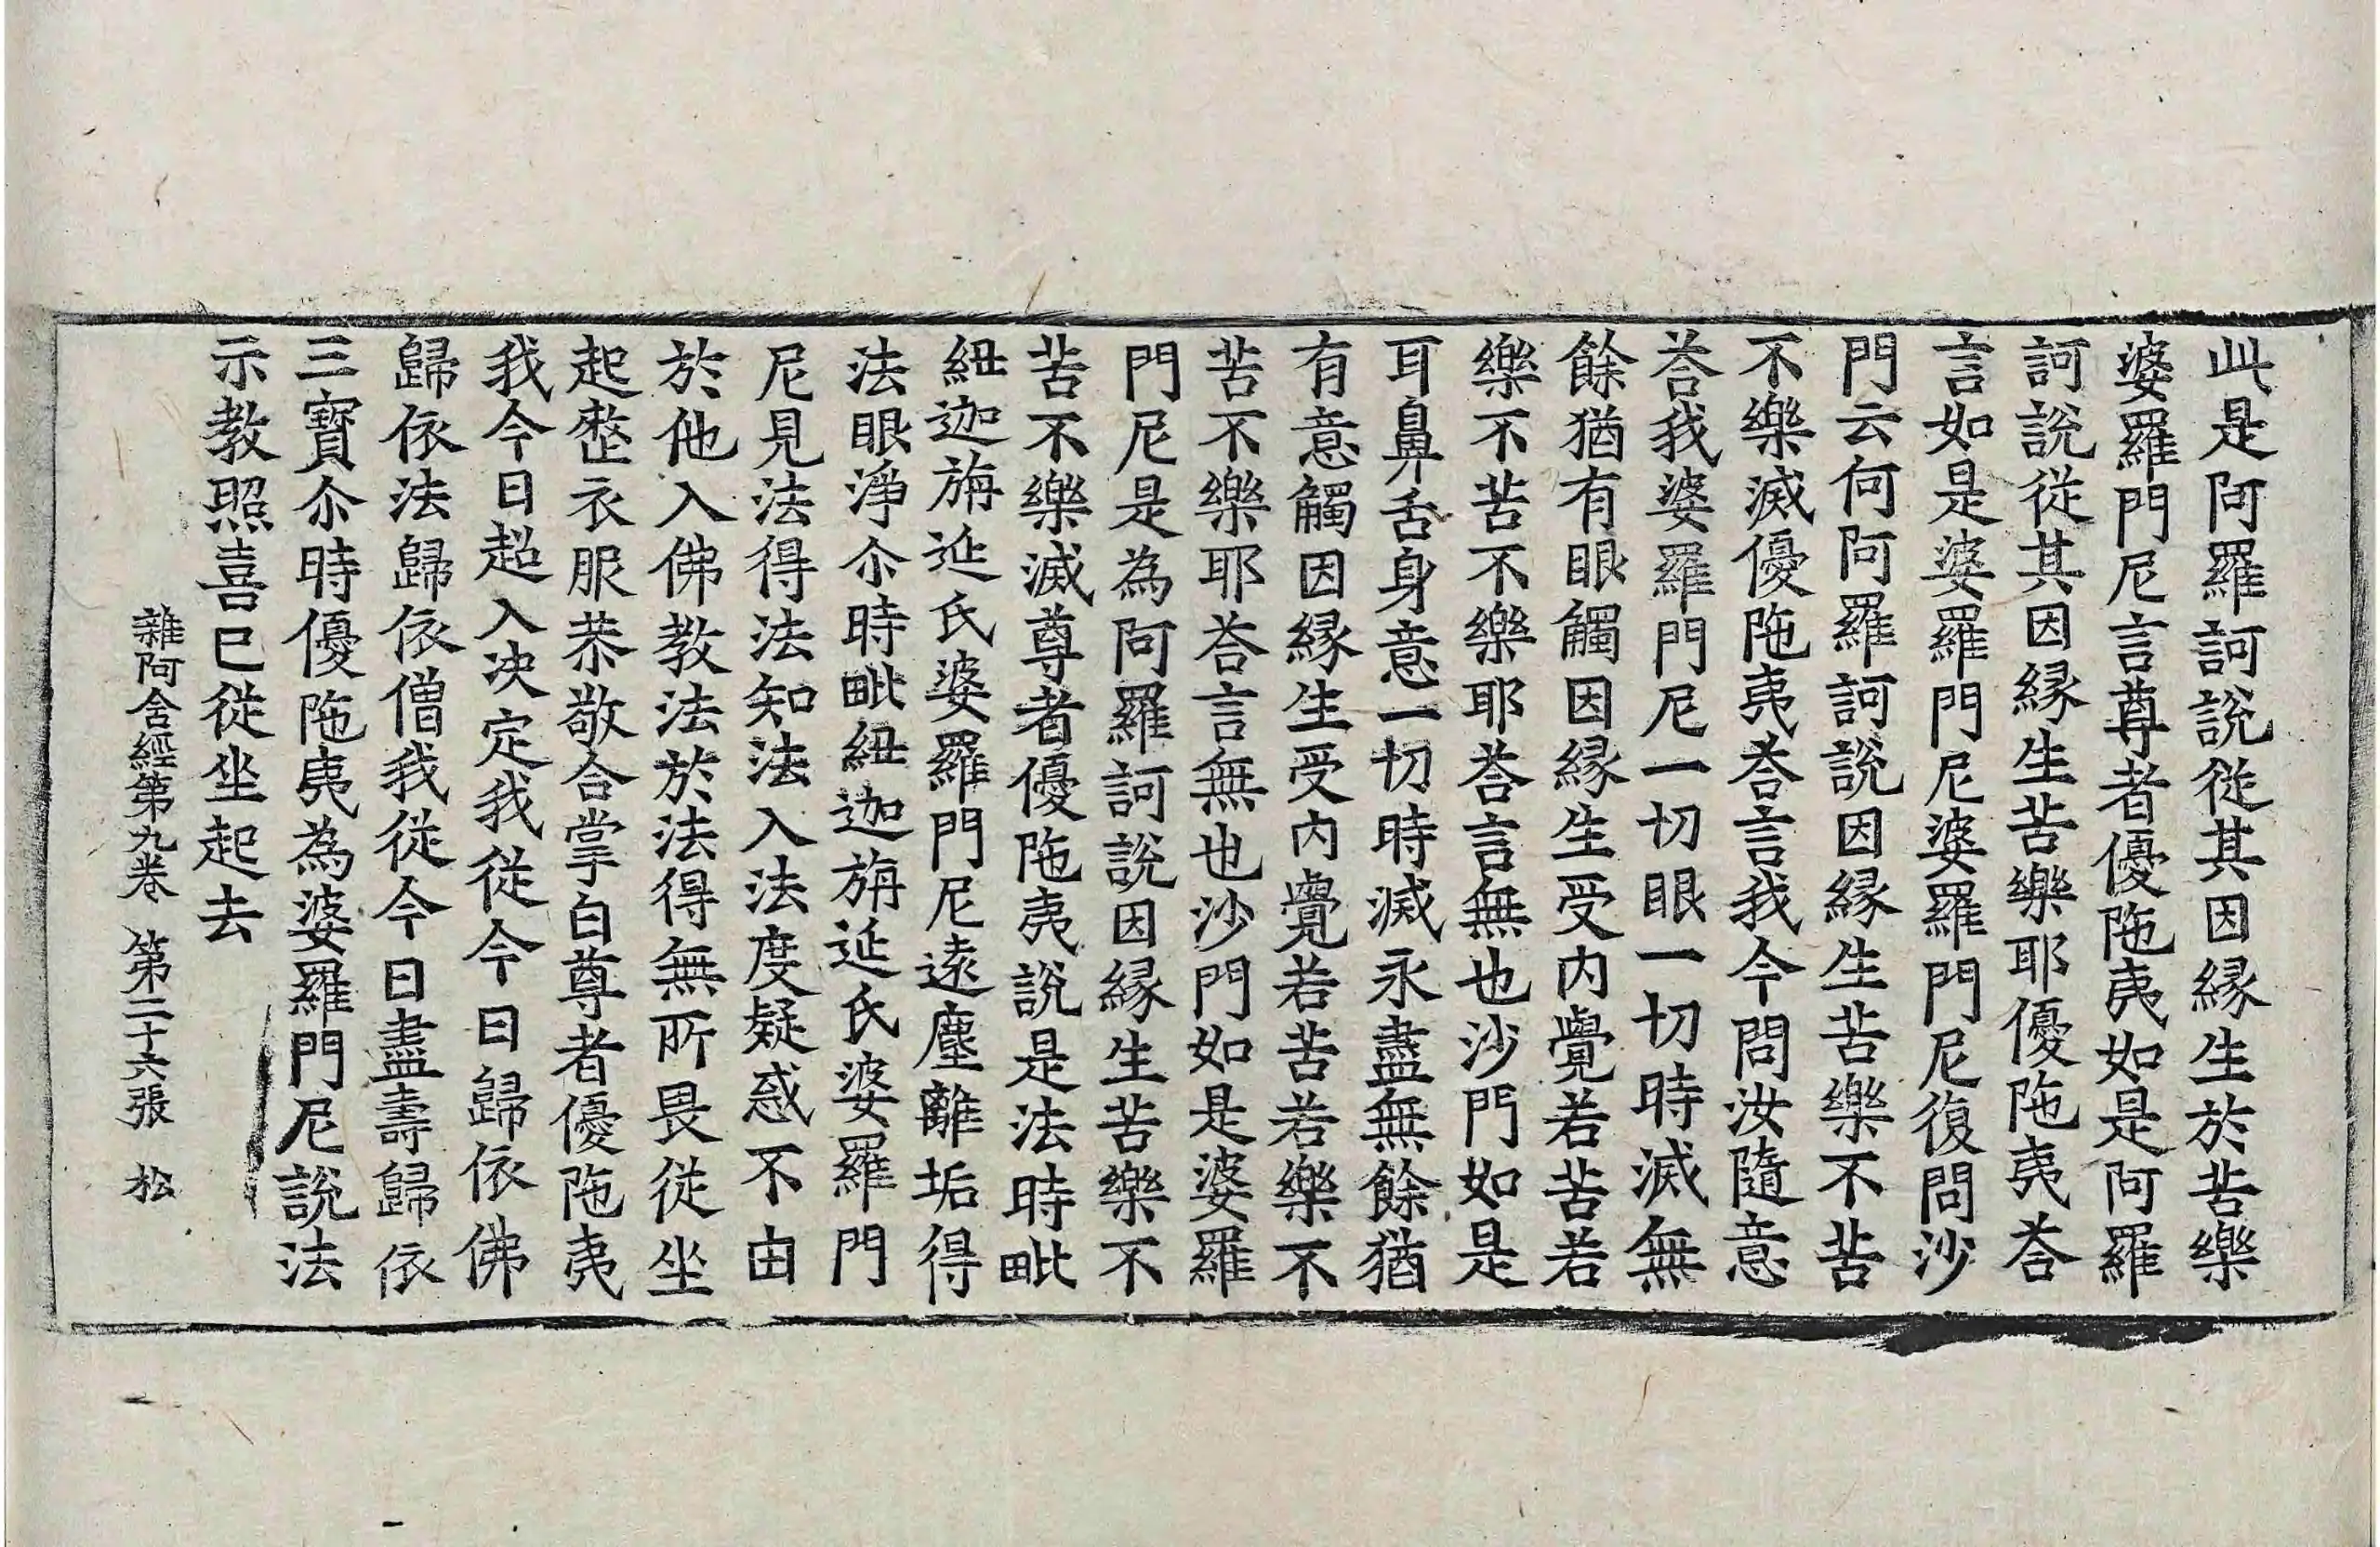 此是阿羅訶說從其因縁生於苦樂
婆羅門尼言尊者優陁夷如是阿羅
訶說從其因縁生苦樂耶優陁夷荅
言如是婆羅門尼婆羅門尼復問沙
門云何阿羅訶說因縁生苦樂不苦
不樂滅優陁夷荅言我今問汝隨意
荅我婆羅門尼一切眼一切時滅無
餘猶有眼觸因縁生受内覺若苦若
樂不苦不樂耶荅言無也沙門如是
耳鼻舌身意一切時滅永盡無餘猶
有意觸因縁生受内覺若苦若樂不
苦不樂耶荅言無也沙門如是婆羅
門尼是為阿羅訶說因縁生苦樂不
苦不樂滅尊者優陁夷說是法時毗
紐迦旃延氏婆羅門尼遠塵離垢得
法眼淨尒時毗紐迦旃延氏婆羅門
尼見法得法知法入法度疑惑不由
於他入佛教法於法得無所畏從坐
起整衣服恭敬合掌白尊者優陁夷
我今日超入决定我從今日歸依佛
歸依法歸依僧我從今日盡壽歸依
三寶尒時優陁夷為婆羅門尼說法
示教照喜已從坐起去
雜阿含經第九卷 第二十六張 松